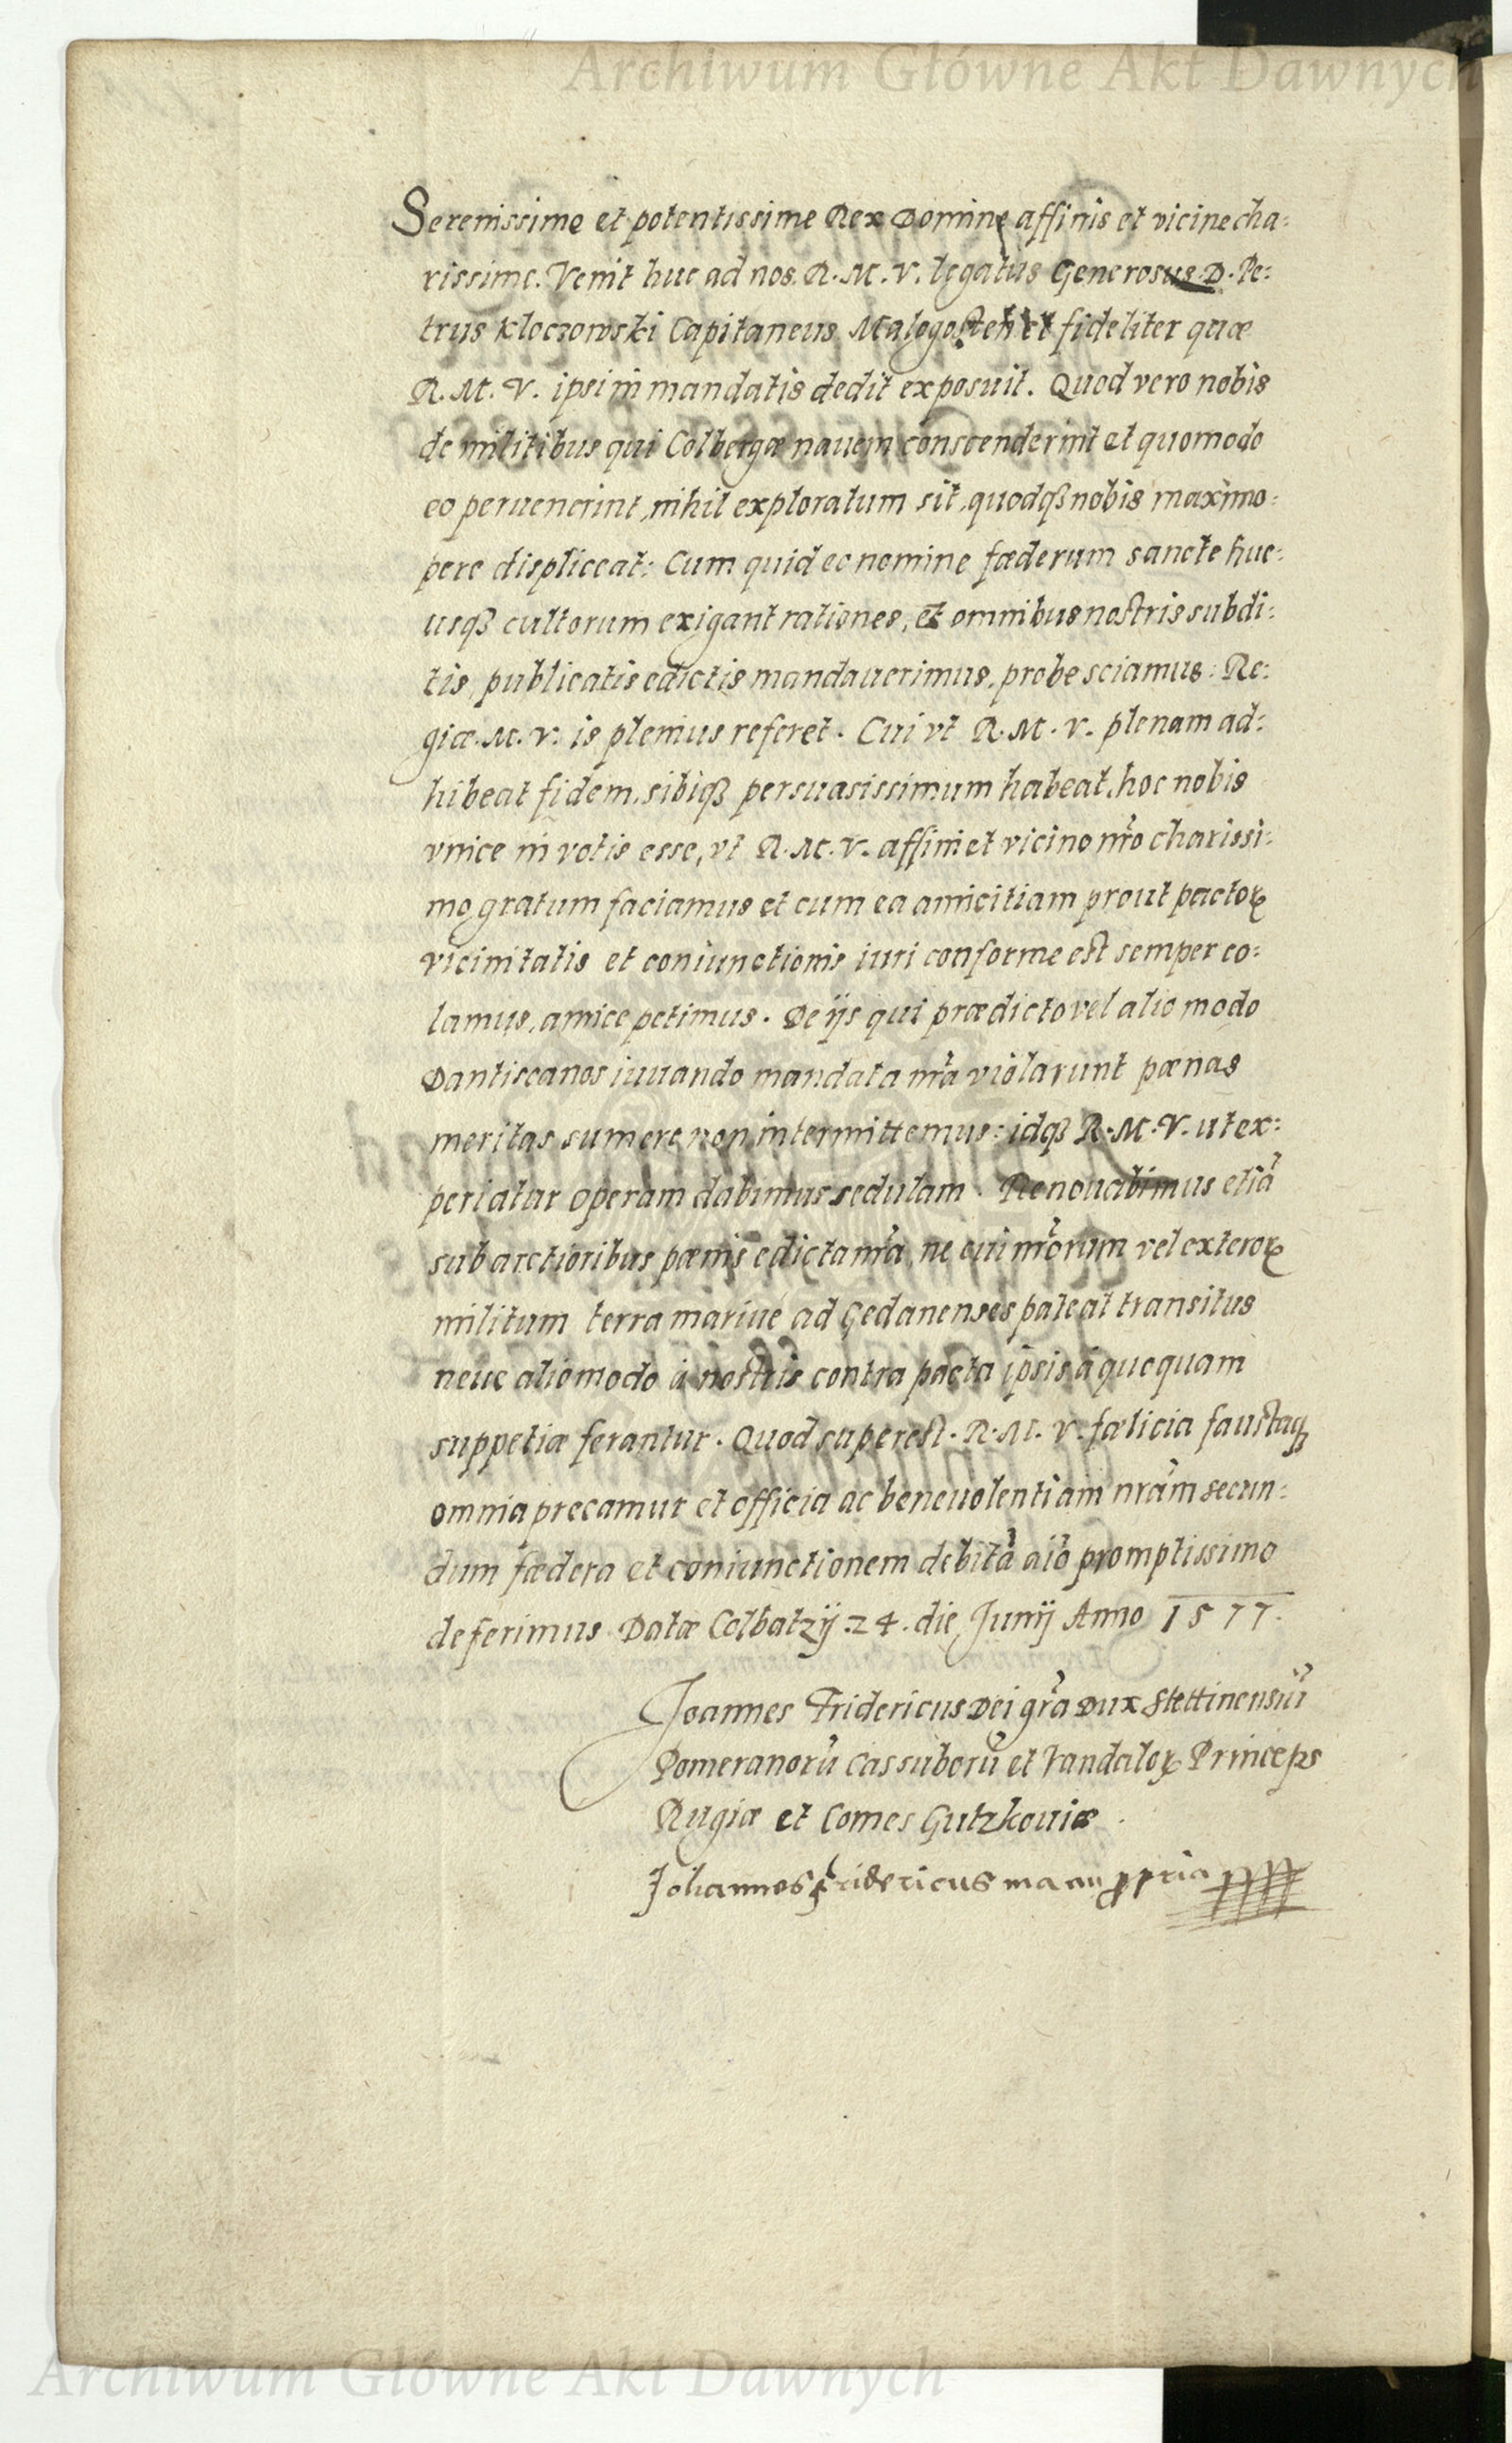 Archiwum Główne Akt Dawnych
Serenissime et potentissime Rex Domine affinis et vicine cha:
rissime. Venit huc ad nos. R. M. V. legatus Generosus D. Pe:
trus Kloczowski Capitaneus Malogosten et fideliter quæ
R. M. V. ipsi in mandatis dedit exposuit. Quod vero nobis
de militibus qui Colbergæ nauem conscenderint et quomodo
eo peruenerint, nihil exploratum sit, quodqȝ nobis maximo:
pere displiceat: Cum quid eo nomine fœderum sancte huc:
usqȝ cultorum exigant rationes, et omnibus nostris subdi:
tis, publicatis edictis mandauerimus, probe sciamus: Re:
giæ. M. V. is plenius referet. Cui vt R. M. V. plenam ad:
hibeat fidem, sibiqȝ persuasissimum habeat, hoc nobis
vnice in votis esse, vt R. M. V. affini et vicino nr̃o charissi:
mo gratum faciamus et cum ea amicitiam prout pactoꝝ
vicinitatis et coniunctionis iuri conforme est semper co:
lamus, amice petimus. De ijs qui prædicto vel alio modo
Dantiscanos iuuando mandata nr̃a violarunt pœnas
meritas sumere non intermittemus: idqȝ R. M. V. ut ex:
periatur operam dabimus sedulam. Renouabimus etiã
sub arctioribus pœnis edicta nr̃a, ne cui nr̃orum vel exteroꝝ
militum terra mariué ad Gedanenses pateat transitus
neue alio modo à nostris contra pacta ipsis à quoquam
suppetiæ ferantur. Quod superest. R. M. V. fœlicia faustaqȝ
omnia precamur et officia ac beneuolentiam nr̃am secun:
dum fœdera et coniunctionem debitã aĩo promptissimo
deferimus Datæ Colbatzij .24. die Junij Anno 1577.
Joannes Fridericus Dei gr̃a Dux Stettinensiũ
Pomeranorũ Cassuborũ et Vandaloꝝ Princeps
Rugiæ et Comes Gutzkouiæ.
Johannes Fridericus manu ppria
Archiwum Główne Akt Dawnych